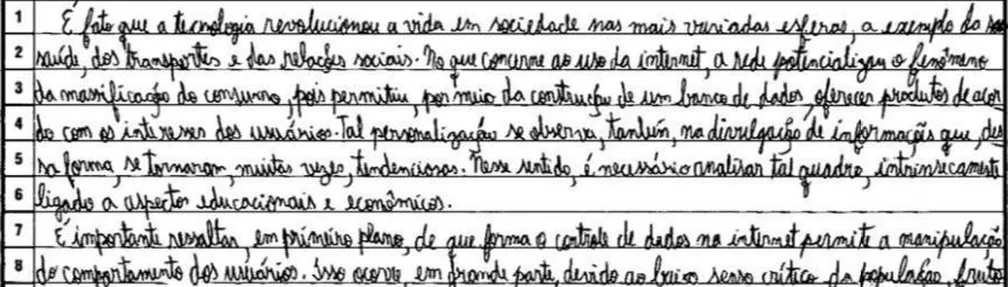 1 É fato que a tecnologia revolucionou a vida em sociedade nas mais variadas esferas, a exemplo da
2 saúde, dos transportes e das relações sociais. No que concerne ao uso da internet, a rede potencializou o fenômeno
3 da massificação do consumo, pois permitiu, por meio da construção de um banco de dados, oferecer produtos de acor
4 do com os interesses dos usuários. Tal personalização se observa, também, na divulgação de informações que, des
5 sa forma, se tornaram, muitas vezes, tendenciosas. Nesse sentido, é necessário analisar tal quadro, intrinsecamente
6 ligado a aspectos educacionais e econômicos.
7 É importante ressaltar, em primeiro plano, de que forma o controle de dados na internet permite a manipulação
8 do comportamento dos usuários. Isso ocorre, em grande parte, devido ao baixo senso crítico da população, fruto